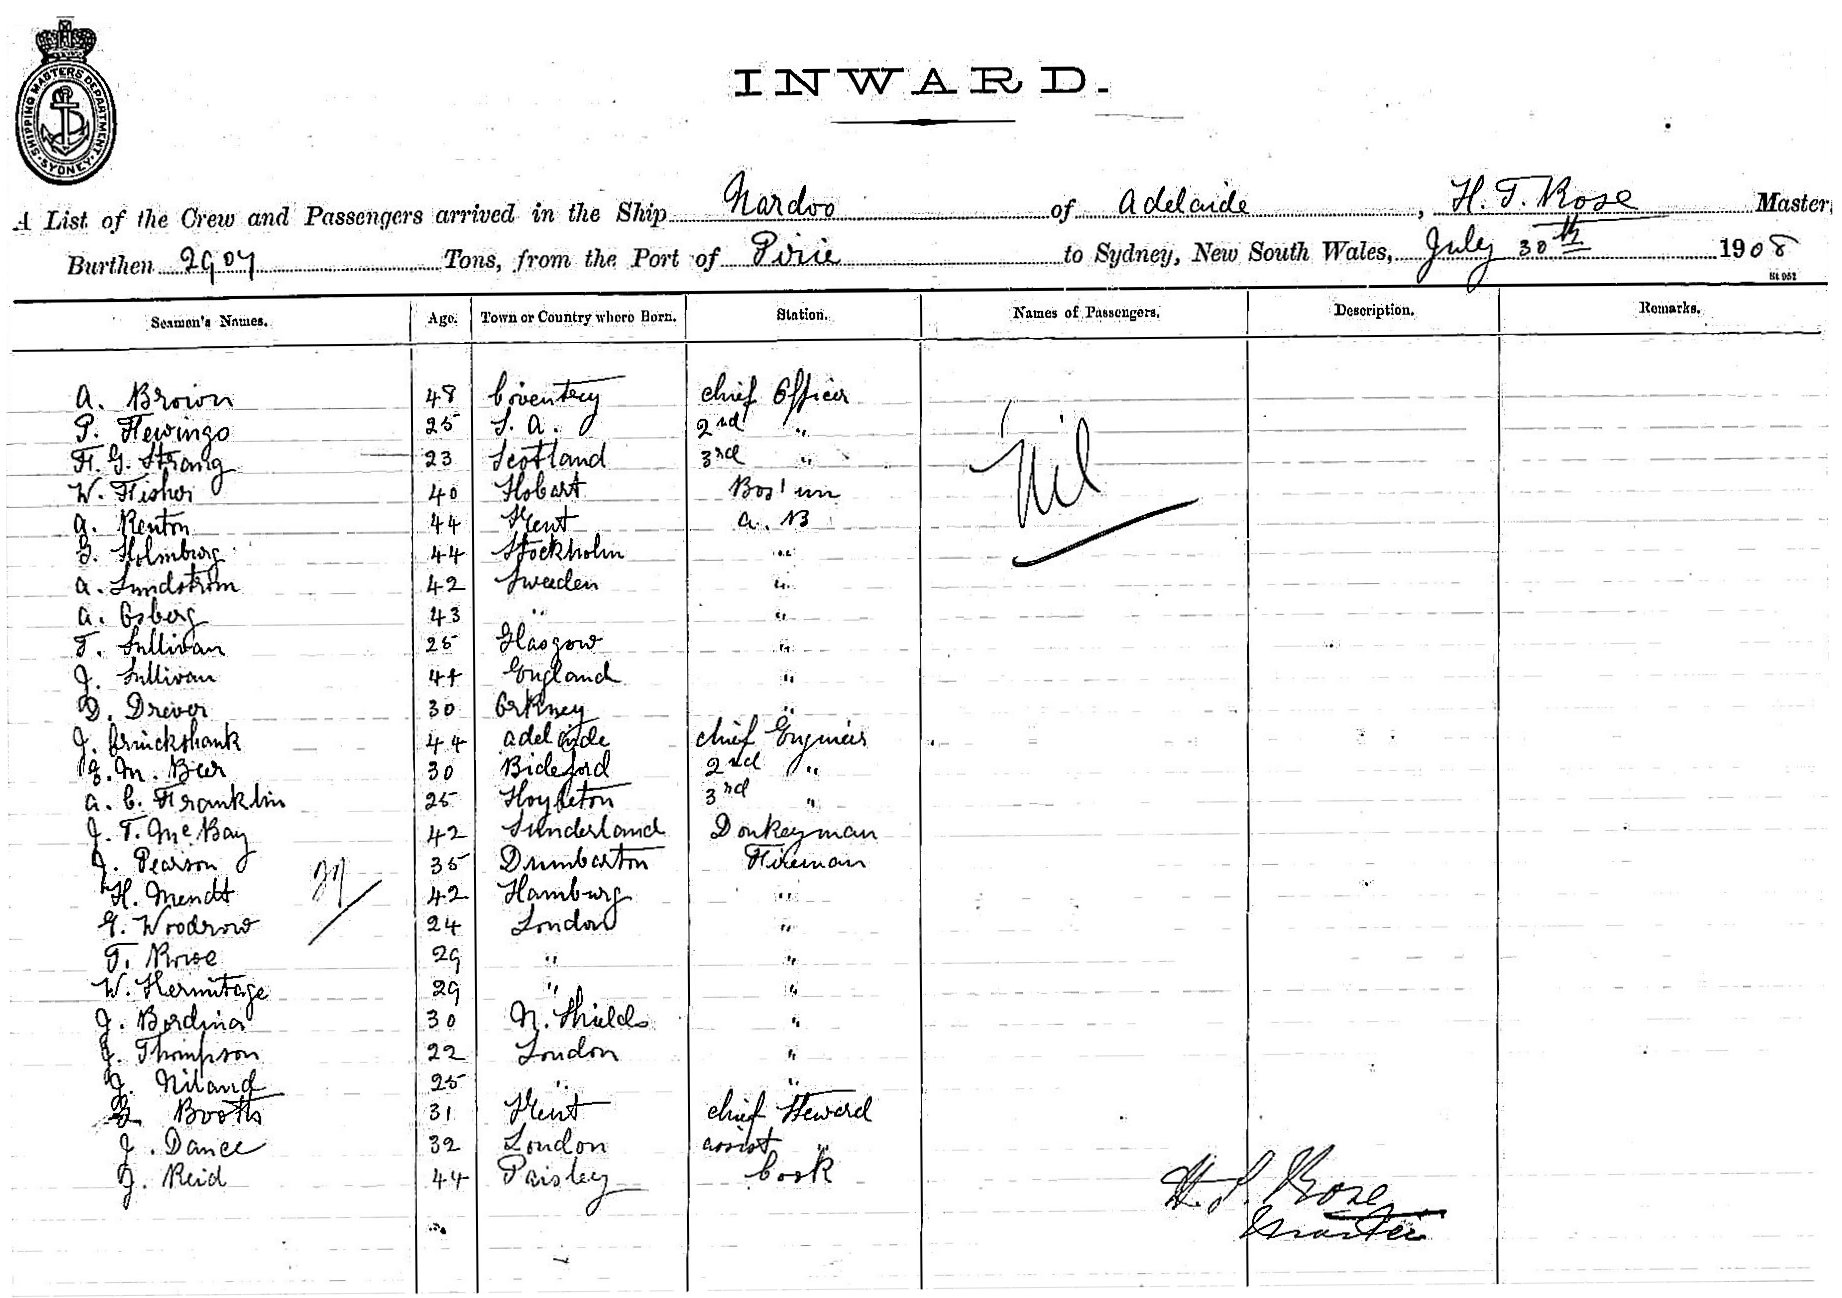 SHIPPING MASTERS DEPARTMENT · SYDNEY ·
INWARD.
A List of the Crew and Passengers arrived in the Ship Nardoo of Adelaide, H. T. Rose Master,
Burthen 2907 Tons, from the Port of Pirie to Sydney, New South Wales, July 30th 1908
St 952
Seamen's Names. Age. Town or Country where Born. Station. Names of Passengers. Description. Remarks.
A. Brown 48 Coventry Chief Officer
P. Flewingo 25 S. A. 2nd "
F. G. Strang 23 Scotland 3rd "
W. Fisher 40 Hobart Bos'un
A. Renton 44 Kent A. B
Nil
Holmburg 44 Stockholm "
A. Lundstrom 42 Sweden "
A. Osberg 43 " "
T. Sullivan 25 Glasgow "
J. Sullivan 44 England "
D. Drever 30 Orkney "
J. Cruickshank 44 Adelaide Chief Engineer
M. Beer 30 Bideford 2nd "
A. C. Franklin 25 Hoyleton 3rd "
J. T. McBay 42 Sunderland Donkeyman
J. Pearson 35 Dumbarton Fireman
27
H. Mendt 42 Hamburg "
G. Woodrow 24 London "
T. Rowe 29 " "
W. Hermitage 29 " "
J. 30 N. Shields "
J. Thompson 22 London "
J. Niland 25 " "
Booth 31 Kent Chief Steward
J. Dance 32 London Assist "
J. Reid 44 Paisley Cook
H. T. Rose
Master